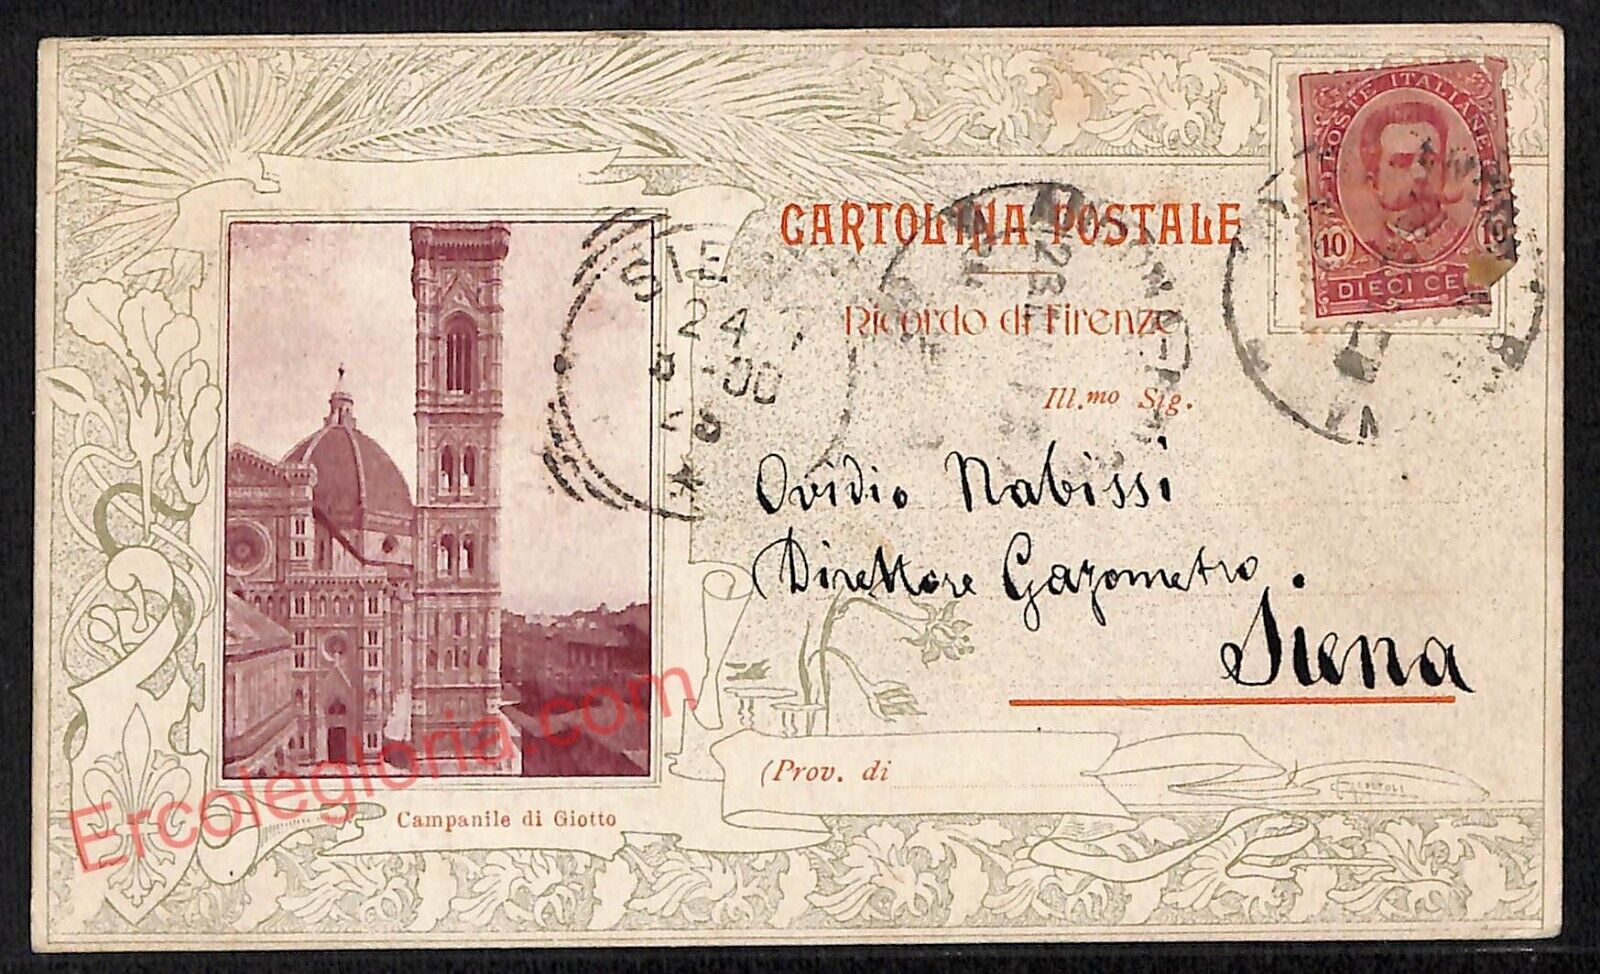 CARTOLINA POSTALE
Ricordo di Firenze
POSTE ITALIANE
10 10
DIECI CE
SIE
24 7
8 -00
Ill.mo Sig.
Ovidio Nabissi
Direttore Gazometro.
Siena
(Prov. di
Campanile di Giotto
Ercolegloria.com